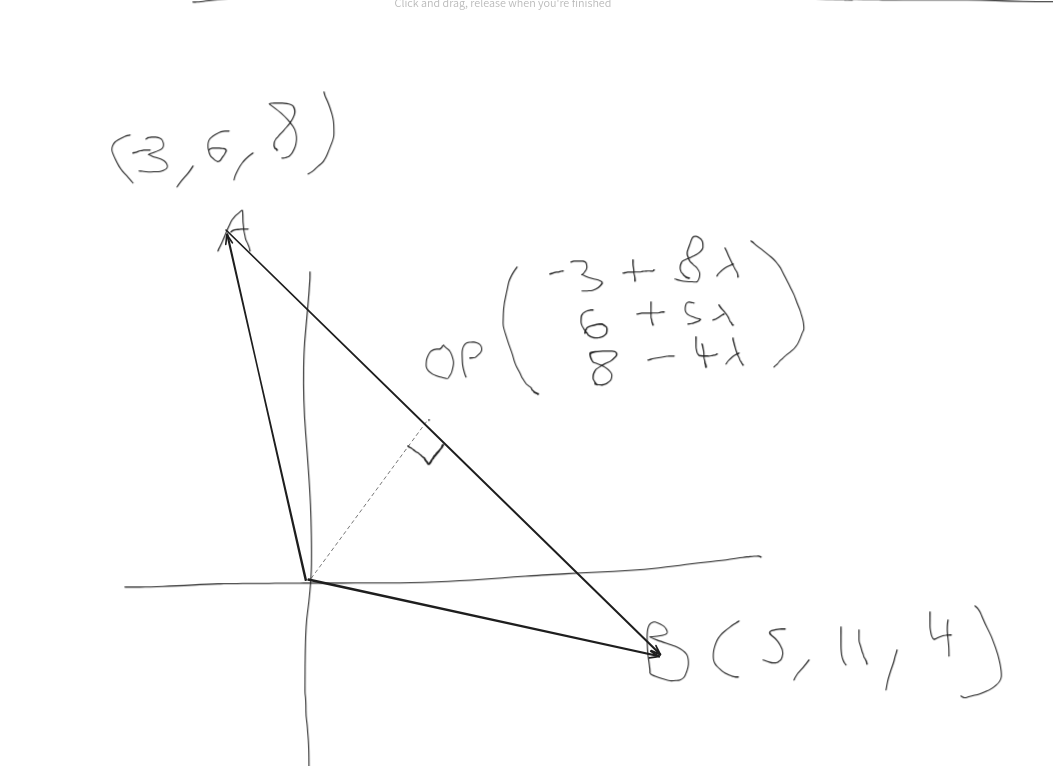 Click and drag, release when you're finished
(-3, 6, 8)
A
-3 + 8λ
6 + 5λ
OP
8 - 4λ
B (5, 11, 4)